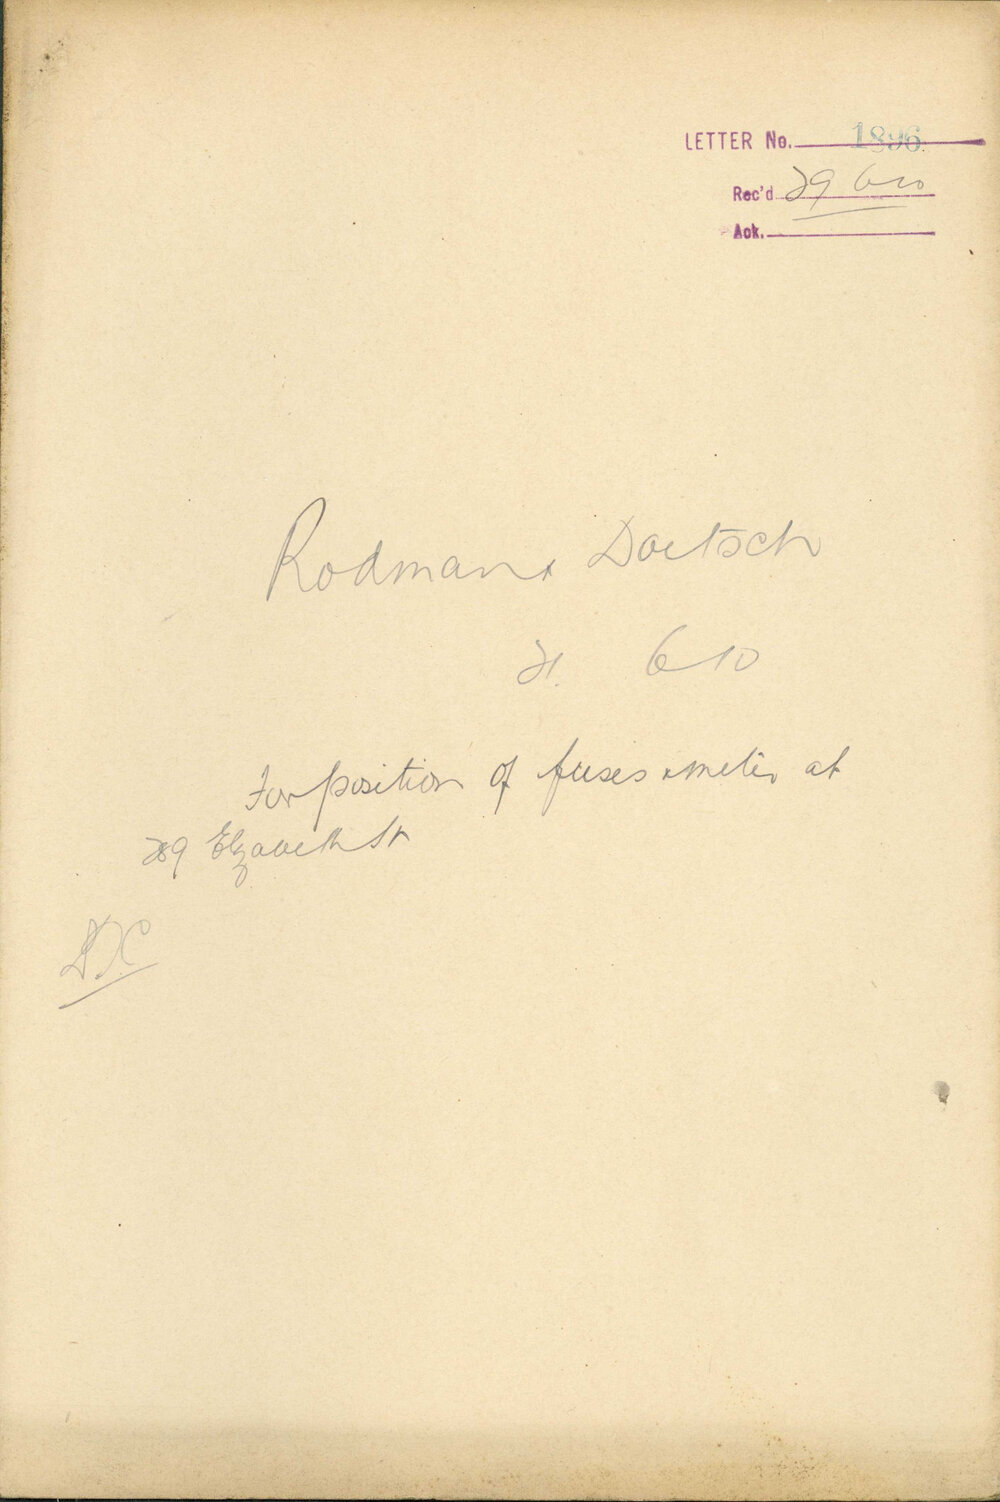 LETTER No. 1896
Rec'd 29 6 10
Ack.
Rodman & Doetsch
21. 6 10
For position of fuses & meter at
289 Elizabeth St